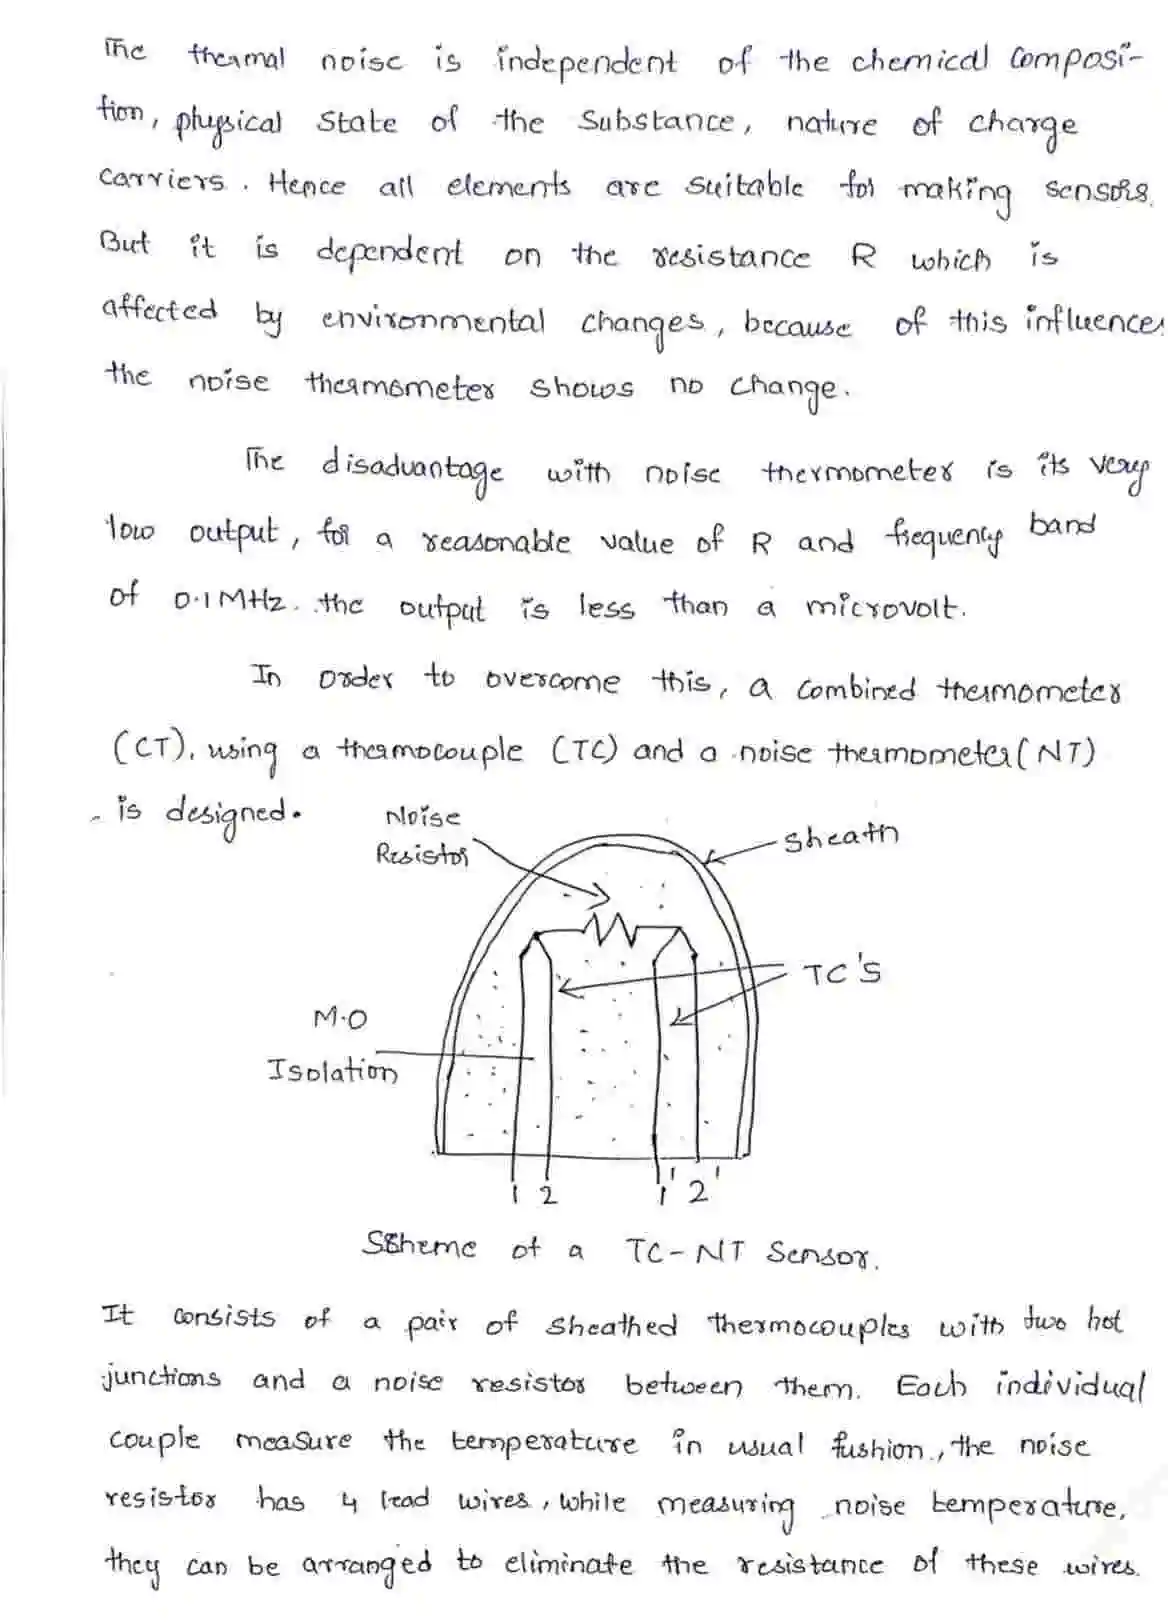 The thermal noise is independent of the chemical composi-
tion, physical state of the substance, nature of charge
carriers. Hence all elements are suitable for making sensors.
But it is dependent on the resistance R which is
affected by environmental changes, because of this influence,
the noise thermometer shows no change.
The disadvantage with noise thermometer is its very
low output, for a reasonable value of R and frequency band
of 0.1MHz. the output is less than a microvolt.
In order to overcome this, a combined thermometer
(CT), using a thermocouple (TC) and a noise thermometer (NT)
is designed.
Noise
Resistor
Sheath
TC'S
M.O
Isolation
1 2 1' 2'
Scheme of a TC-NT Sensor.
It consists of a pair of sheathed thermocouples with two hot
junctions and a noise resistor between them. Each individual
couple measure the temperature in usual fushion, the noise
resistor has 4 lead wires, while measuring noise temperature,
they can be arranged to eliminate the resistance of these wires.